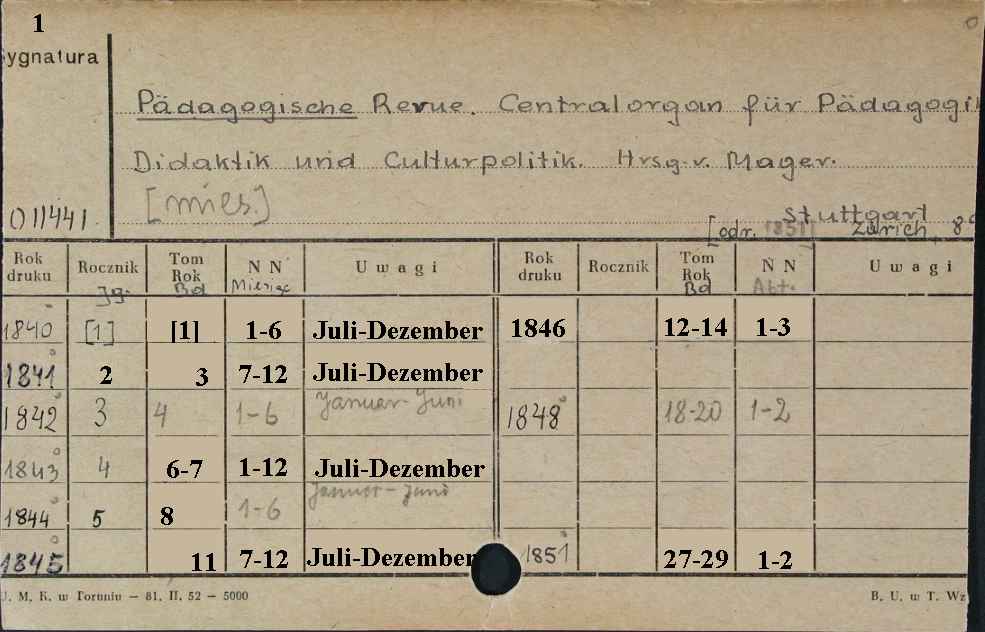 1
ygnatura
Pädagogische Revue. Centralorgan für Pädagogi
Didaktik und Culturpolitik. Hrsg. v. Mager.
[mies.]
011441.
Stuttgart
[odr. 1851] Zürich, 8°
Rok druku Rocznik Tom Rok N N Uwagi Rok druku Rocznik Tom Rok N N Uwagi
Jg. Bd Miesiąc Bd Abt.
1840 [1] [1] 1-6 Juli-Dezember 1846 12-14 1-3
1841 2 3 7-12 Juli-Dezember
1842 3 4 1-6 Januar-Juni 1848 18-20 1-2
1843 4 6-7 1-12 Juli-Dezember
1844 5 8 1-6 Januar-Juni
1845 11 7-12 Juli-Dezember 1851 27-29 1-2
J. M. K. w Toruniu — 81. II. 52 — 5000 B. U. w T. Wz